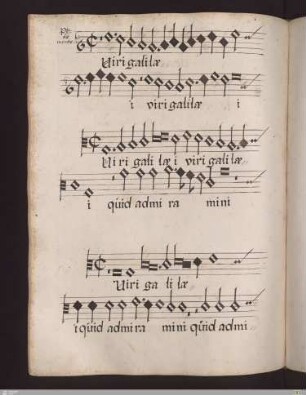 Viri galilæ
i viri galilæ i
Viri gali læ i viri gali læ
i quid admi ra mini
Viri ga li læ
i quid admira mini quid admi